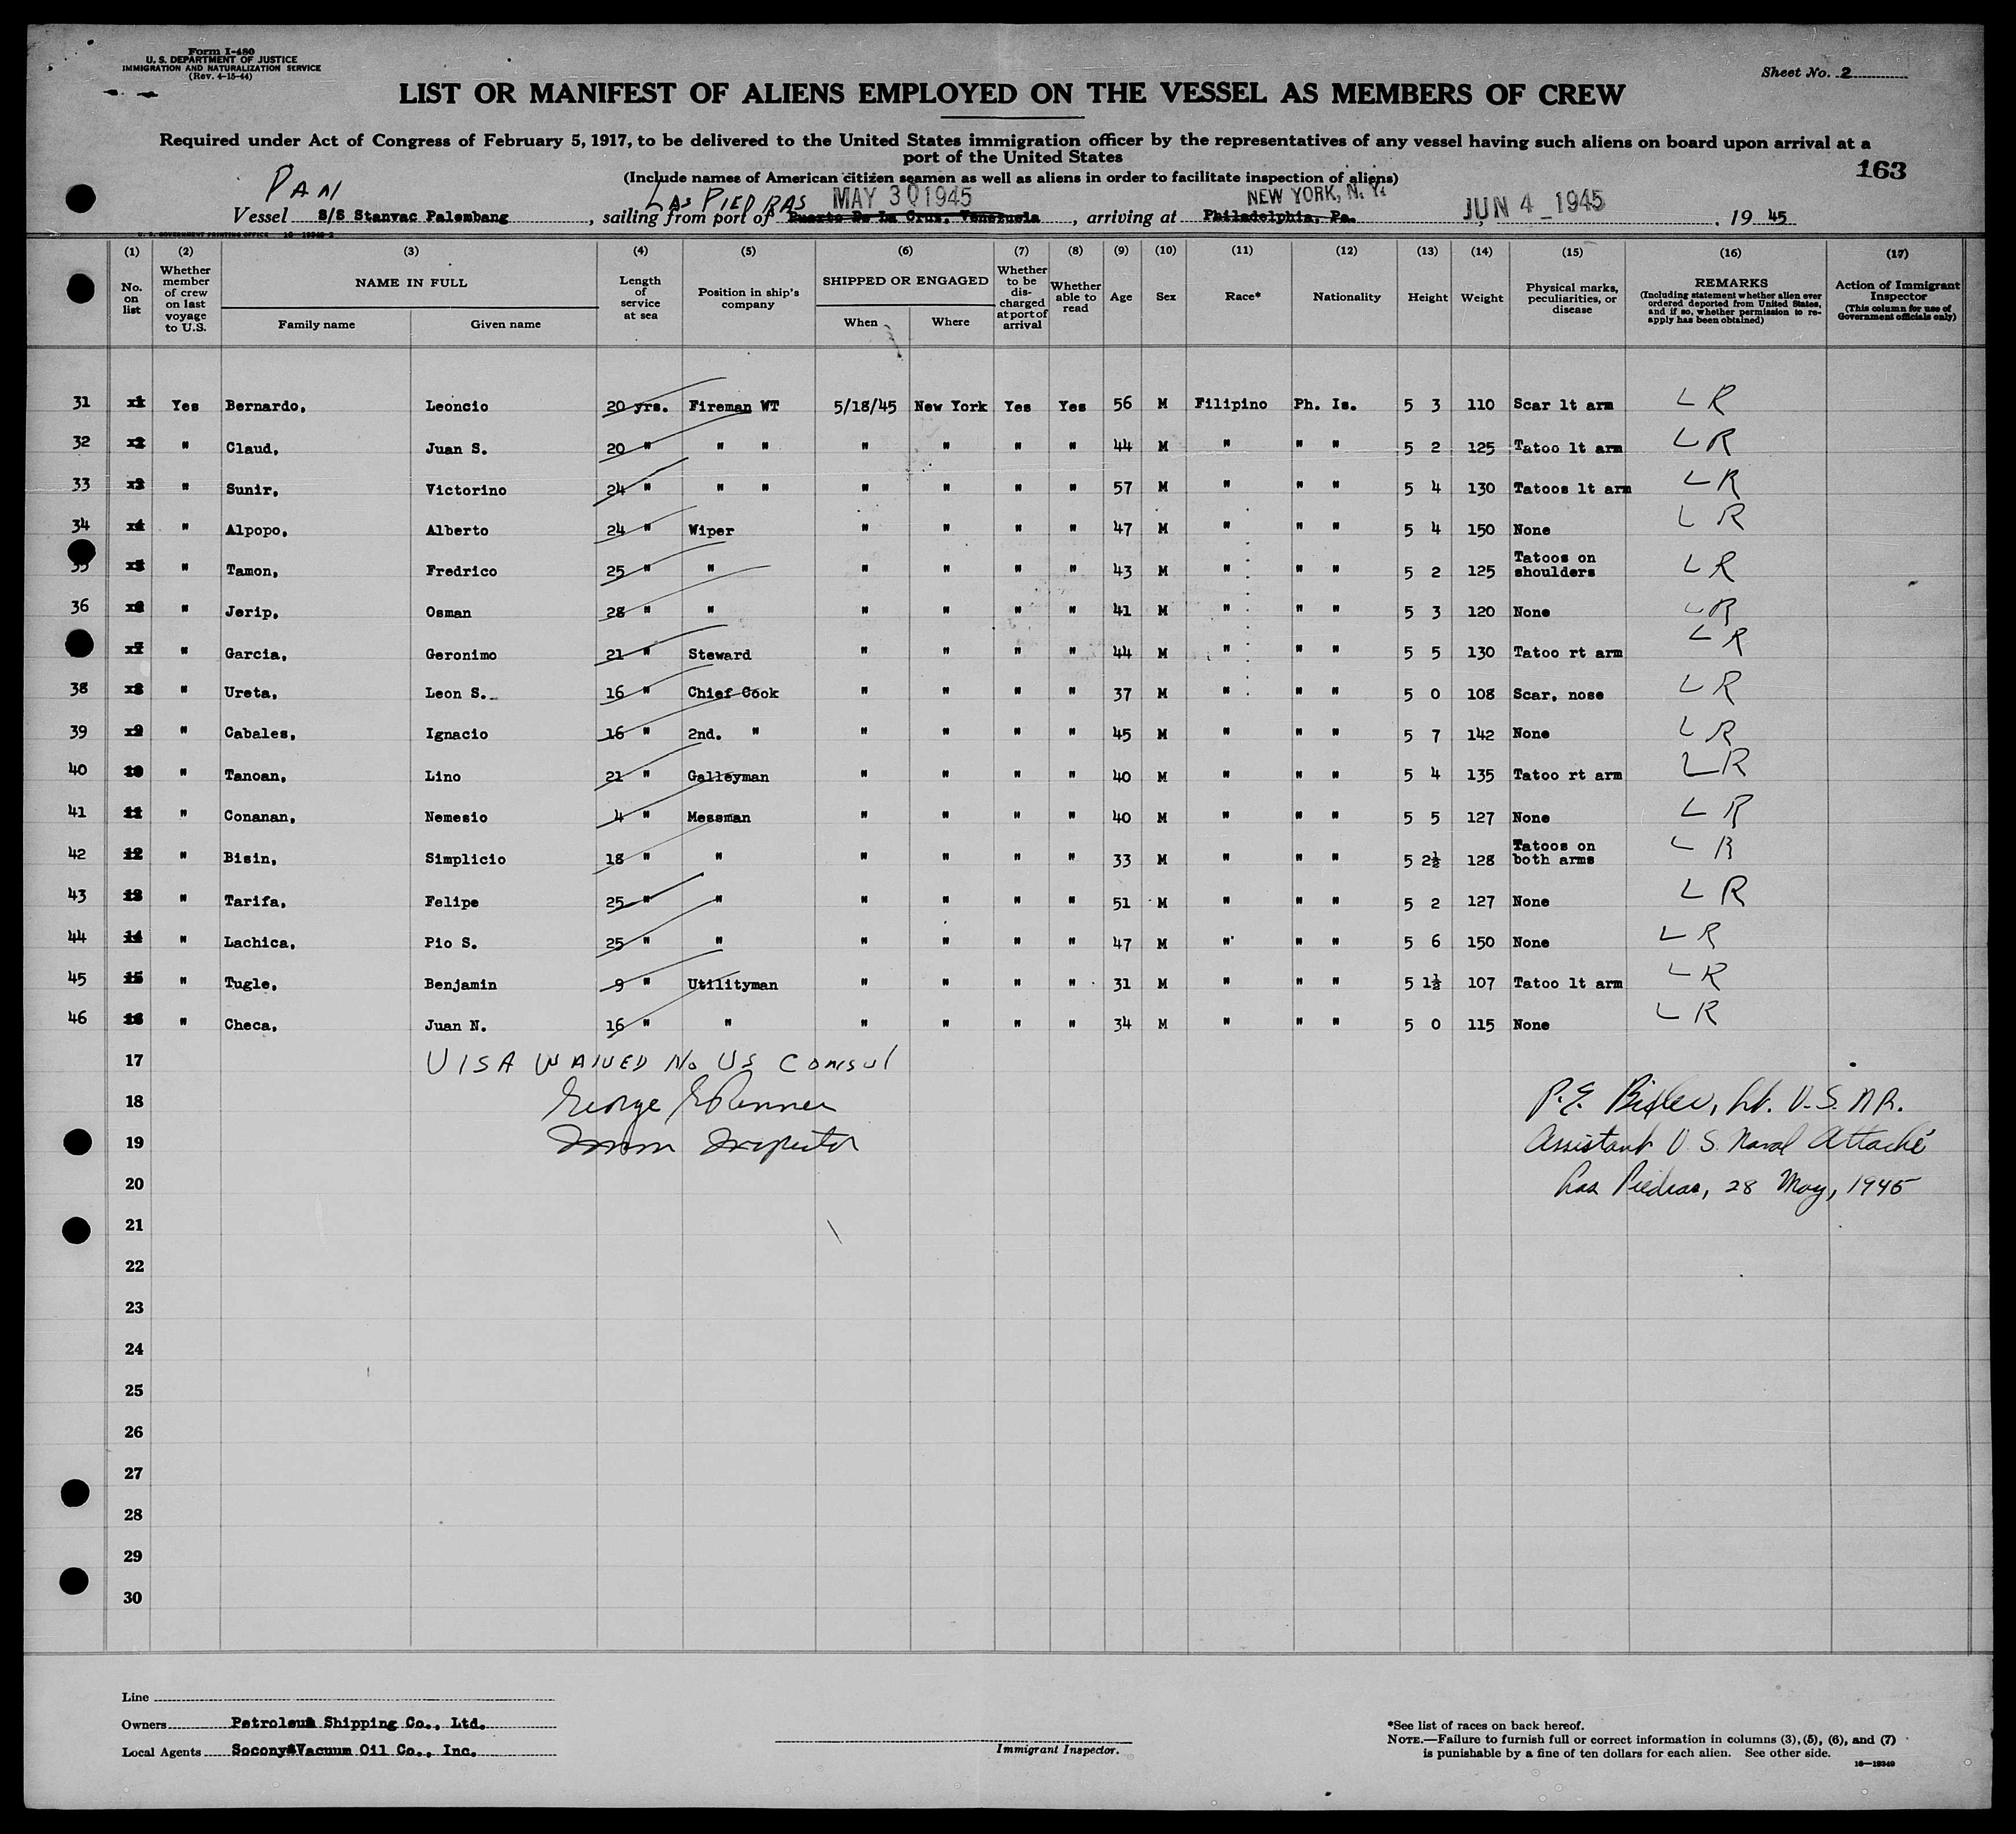 Form I-480
U. S. DEPARTMENT OF JUSTICE
IMMIGRATION AND NATURALIZATION SERVICE
(Rev. 4-15-44)
Sheet No. 2
LIST OR MANIFEST OF ALIENS EMPLOYED ON THE VESSEL AS MEMBERS OF CREW
Required under Act of Congress of February 5, 1917, to be delivered to the United States immigration officer by the representatives of any vessel having such aliens on board upon arrival at a
port of the United States
163
(Include names of American citizen seamen as well as aliens in order to facilitate inspection of aliens)
PAN LAS PIEDRAS MAY 30 1945 NEW YORK, N. Y. JUN 4 1945
Vessel S/S Stanvac Palembang, sailing from port of Puerto De La Cruz, Venezuela, arriving at Philadelphia, Pa., 19 45
U. S. GOVERNMENT PRINTING OFFICE
(1) (2) (3) (4) (5) (6) (7) (8) (9) (10) (11) (12) (13) (14) (15) (16) (17)
No. on list
Whether member of crew on last voyage to U.S.
NAME IN FULL
Family name
Given name
Length of service at sea
Position in ship's company
SHIPPED OR ENGAGED
When
Where
Whether to be discharged at port of arrival
Whether able to read
Age
Sex
Race*
Nationality
Height
Weight
Physical marks, peculiarities, or disease
REMARKS
(Including statement whether alien ever ordered deported from United States, and if so, whether permission to reapply has been obtained)
Action of Immigrant Inspector
(This column for use of Government officials only)
31 x1 Yes Bernardo, Leoncio 20 yrs. Fireman WT 5/18/45 New York Yes Yes 56 M Filipino Ph. Is. 5 3 110 Scar lt arm L R
32 x2 " Claud, Juan S. 20 " " " " " " " 44 M " " " 5 2 125 Tatoo lt arm L R
33 x3 " Sunir, Victorino 24 " " " " " " " 57 M " " " 5 4 130 Tatoos lt arm L R
34 x4 " Alpopo, Alberto 24 " Wiper " " " " 47 M " " " 5 4 150 None L R
35 x5 " Tamon, Fredrico 25 " " " " " " 43 M " " " 5 2 125 Tatoos on shoulders L R
36 x6 " Jerip, Osman 28 " " " " " " 41 M " " " 5 3 120 None L R
x7 " Garcia, Geronimo 21 " Steward " " " " 44 M " " " 5 5 130 Tatoo rt arm L R
38 x8 " Ureta, Leon S. 16 " Chief Cook " " " " 37 M " " " 5 0 108 Scar, nose L R
39 x9 " Cabales, Ignacio 16 " 2nd. " " " " " 45 M " " " 5 7 142 None L R
40 10 " Tanoan, Lino 21 " Galleyman " " " " 40 M " " " 5 4 135 Tatoo rt arm L R
41 11 " Conanan, Nemesio 4 " Messman " " " " 40 M " " " 5 5 127 None L R
42 12 " Bisin, Simplicio 18 " " " " " " 33 M " " " 5 2½ 128 Tatoos on both arms L R
43 13 " Tarifa, Felipe 25 " " " " " " 51 M " " " 5 2 127 None L R
44 14 " Lachica, Pio S. 25 " " " " " " 47 M " " " 5 6 150 None L R
45 15 " Tugle, Benjamin 9 " Utilityman " " " " 31 M " " " 5 1½ 107 Tatoo lt arm L R
46 16 " Checa, Juan N. 16 " " " " " " 34 M " " " 5 0 115 None L R
17 VISA WAIVED No US Consul
18 George P.E. Bixler, Lt. U.S.N.R.
19 Imm Inspector Assistant U.S. Naval Attaché
20 Las Piedras, 28 May, 1945
21
22
23
24
25
26
27
28
29
30
Line
Owners Petroleum Shipping Co., Ltd.
Local Agents Socony-Vacuum Oil Co., Inc.
Immigrant Inspector.
*See list of races on back hereof.
NOTE.—Failure to furnish full or correct information in columns (3), (5), (6), and (7)
is punishable by a fine of ten dollars for each alien. See other side.